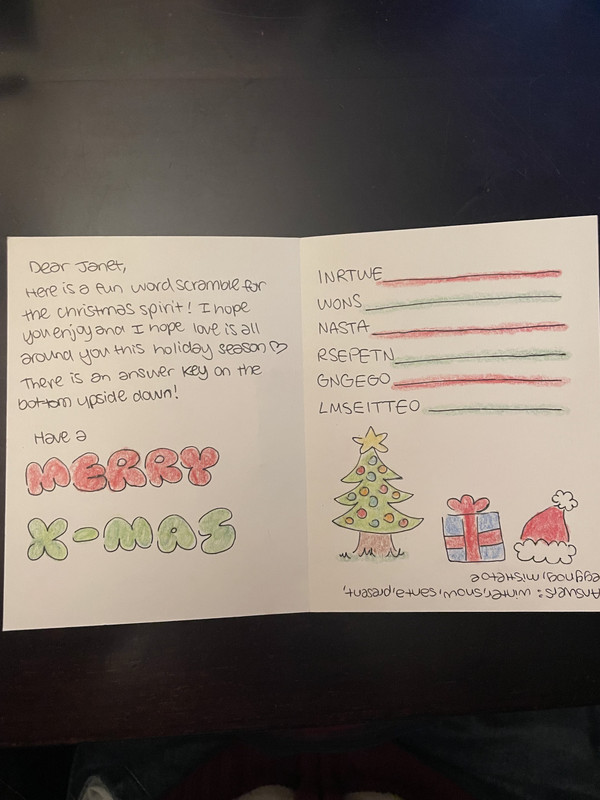 Dear Janet,
Here is a fun word scramble for
the christmas spirit! I hope
you enjoy and I hope love is all
around you this holiday season ♡
There is an answer key on the
bottom upside down!
Have a
MERRY
X-MAS
INRTWE
WONS
NASTA
RSEPETN
GNGEGO
LMSEITTEO
Answers: winter, snow, santa, present,
eggnog, mistletoe